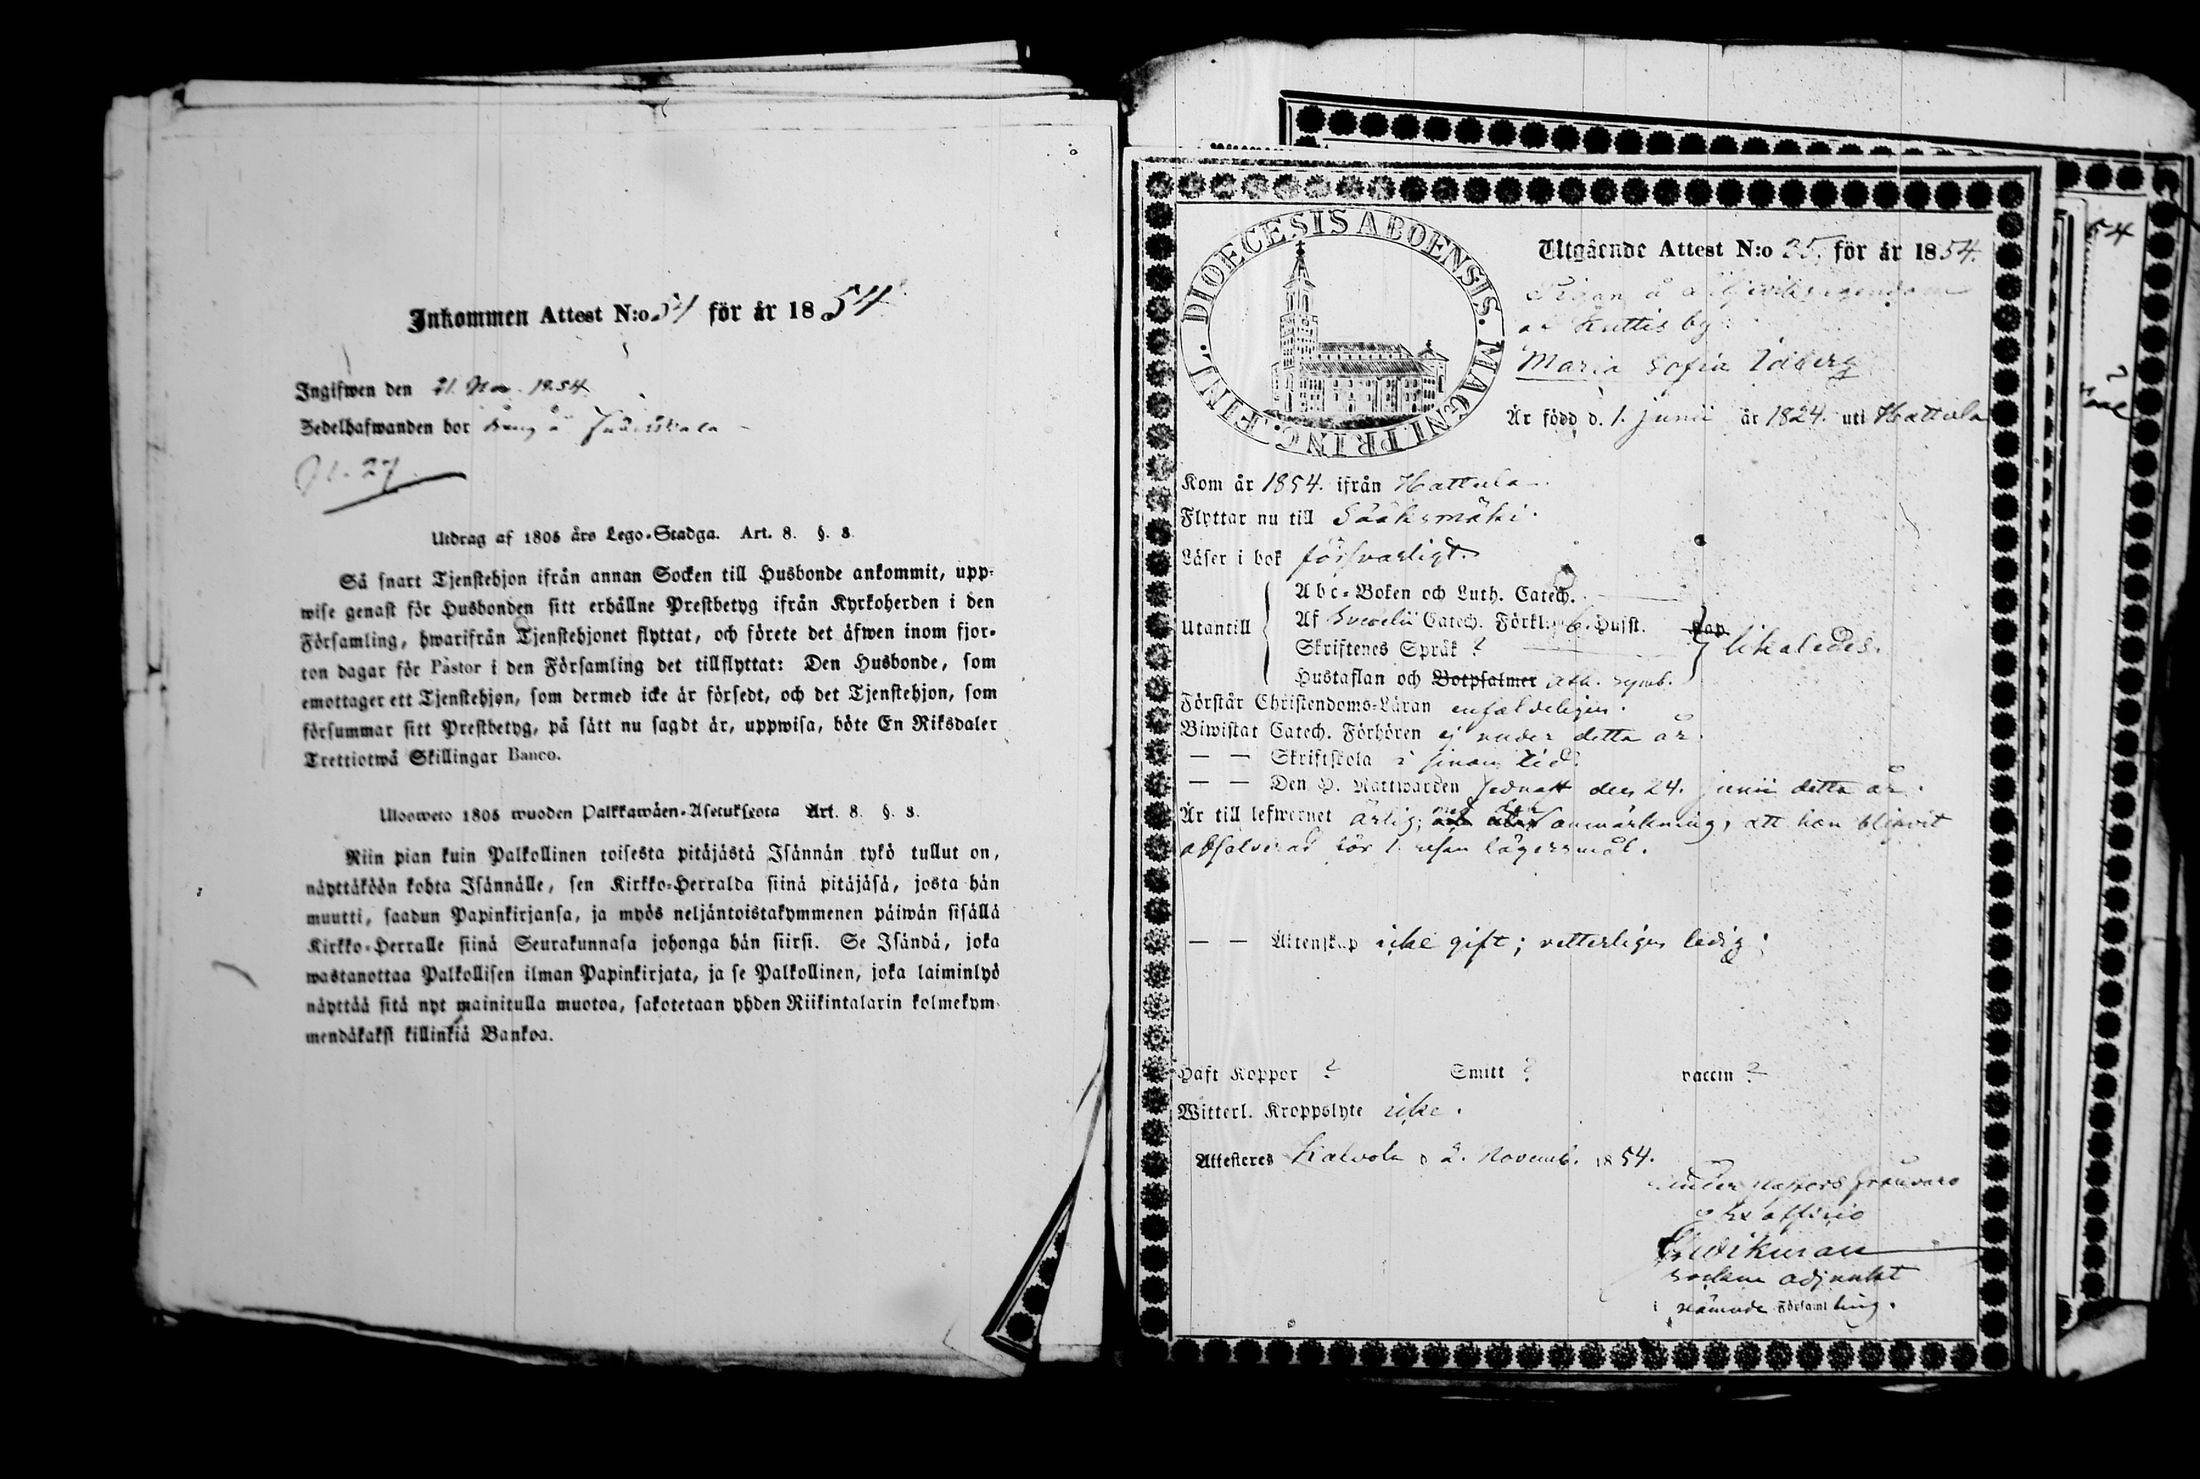 Inkommen Attest N:o 54 för år 1854
Ingifwen den 21. Nov. 1854.
Zedelhafwanden bor
Utdrag af 1805 års Lego-Stadga. Art. 8. §. 3.
Så snart Tjenstehjon ifrån annan Socken till Husbonde ankommit, upp-
wise genast för Husbonden sitt erhållne Prestbetyg ifrån Kyrkoherden i den
Församling, hwarifrån Tjenstehjonet flyttat, och förete det äfwen inom fjor-
ton dagar för Pastor i den Församling det tillflyttat: Den Husbonde, som
emottager ett Tjenstehjon, som dermed icke är försedt, och det Tjenstehjon, som
försummar sitt Prestbetyg, på sätt nu sagdt är, uppwisa, böte En Riksdaler
Trettiotwå Skillingar Banco.
Ulosweto 1805 wuoden Palkkawäen-Asetuksesta Art. 8. §. 3.
Niin pian kuin Palkollinen toisesta pitäjästä Isännän tykö tullut on,
näyttäköön kohta Isännälle, sen Kirkko-Herralda siinä pitäjäsä, josta hän
muutti, saadun Papinkirjansa, ja myös neljäntoistakymmenen päiwän sisällä
Kirkko-Herralle siinä Seurakunnasa johonga hän siirsi. Se Isändä, joka
wastanottaa Palkollisen ilman Papinkirjata, ja se Palkollinen, joka laiminlyö
näyttää sitä nyt mainitulla muotoa, sakotetaan yhden Riikintalarin kolmekym-
mendäkaksi killinkiä Bankoa.
DIOECESIS ABOENSIS. MAGNI PRINC. FINL.
Utgående Attest N:o 25, för år 1854.
Pigan
Kuttis by
Maria Sofia Idberg
Är född d. 1. junii år 1824. uti Hattula
Kom år 1854. ifrån Hattula.
Flyttar nu till Sääksmäki.
Läser i bok försvarligt.
Utantill
Abc-Boken och Luth. Catech.
Af Svebelii Catech. Förkl. Husst. Kap.
Skriftenes Språk ?
Hustaflan och Botpsalmer Ath. symb.
likaledes.
Förstår Christendoms-Läran enfaldeligen.
Biwistat Catech. Förhören ej under detta år.
— — Skriftskola i sinom tid.
— — Den H. Nattwarden sednast den 24. junii detta år.
Är till lefwernet ärlig; med den anmärkning, att hon blifvit
absolverad för 1. resan lägersmål.
— — Äktenskap icke gift; vetterligen ledig.
Haft Koppor ? Smitt ? vaccin ?
Witterl. Kroppslyte icke.
Attesteres Kalvola d 2. Novemb. 1854.
under Pastors frånvaro
ex officio
sockne adjunkt
i nämnde Församling.